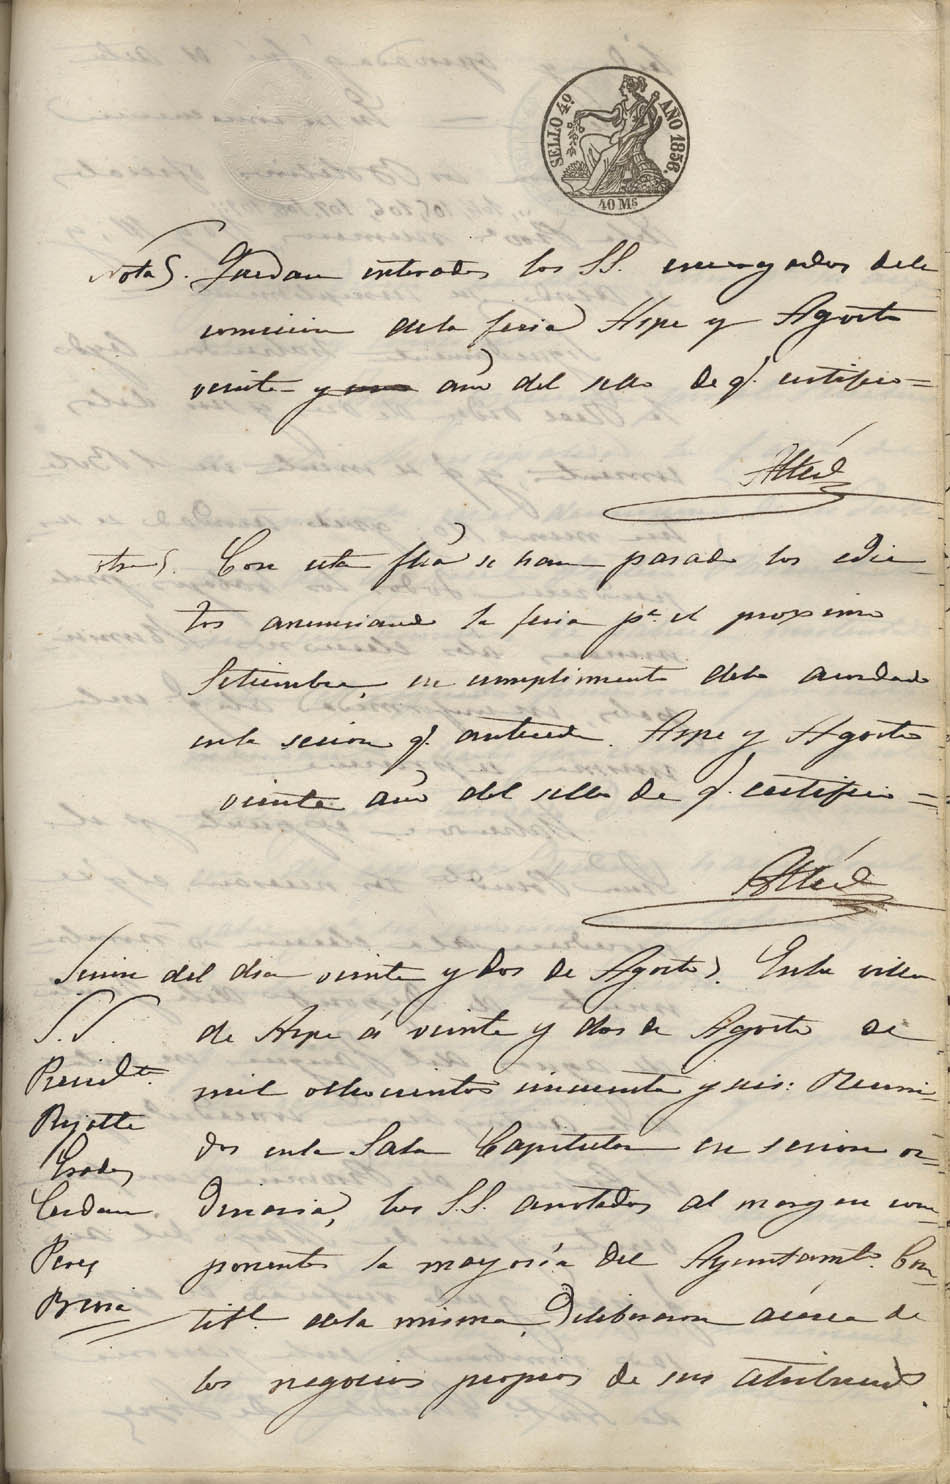 SELLO 4º AÑO 1856.
40 Ms
Nota. Quedan enterados los SS. encargados dela
comision dela feria Aspe y Agosto
veinte y año del sello de q.e certifico =
otra. Con esta fha se han pasado los edic-
tos anunciando la feria p.a el proximo
Setiembre, en cumplimiento delo acordado
enla sesion q.e antecede. Aspe y Agosto
veinte año del sello de q.e certifico =
Sesion del dia veinte y dos de Agosto. Enla villa
S.S.
Presid.te
Prados
Cerdan
Perez
de Aspe á veinte y dos de Agosto de
mil ochocientos cincuenta y seis: Reuni-
dos enla Sala Capitular en sesion or-
dinaria, los S.S. anotados al margen com-
ponentes la mayoría del Ayuntamto. Cons-
titl. dela misma, deliberaron acerca de
los negocios propios de sus atribuciones.